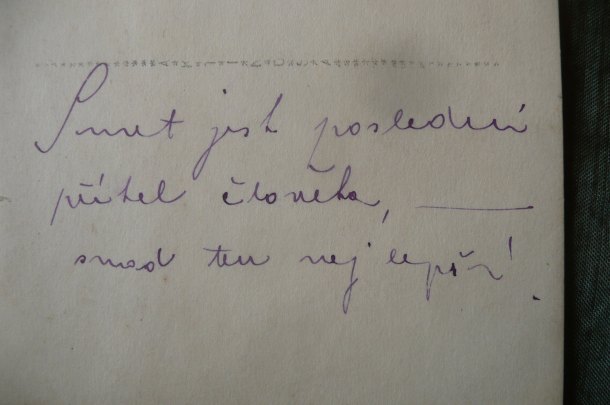 Smrt jest poslední
přítel člověka, —
snad ten nejlepší.